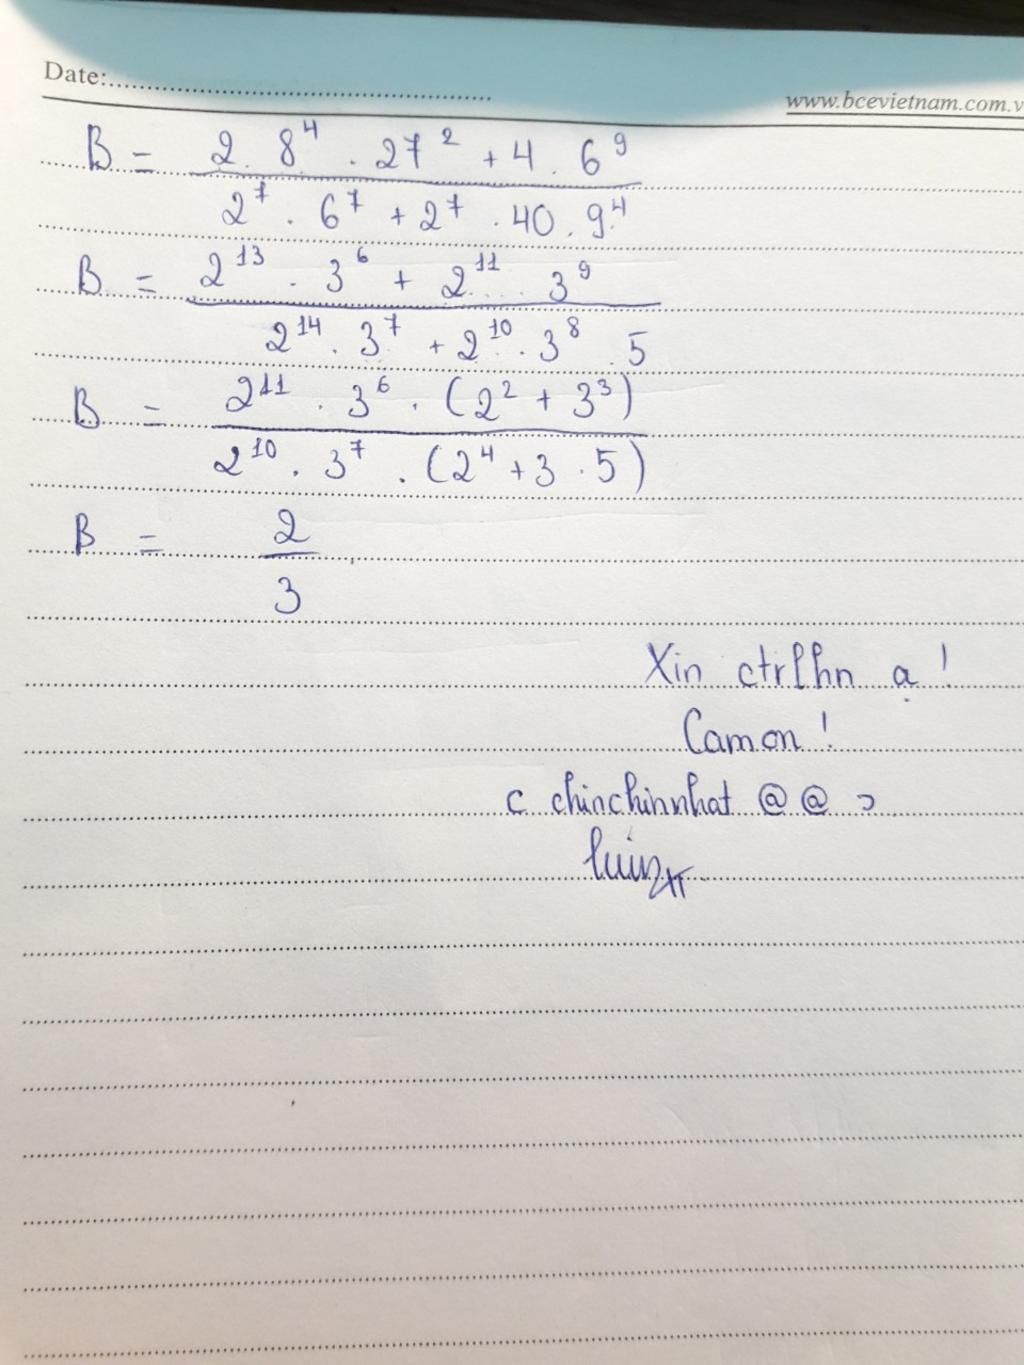 Date:
www.bcevietnam.com.v
B = (2 . 8^4 . 27^2 + 4 . 6^9) / (2^7 . 6^7 + 2^7 . 40 . 9^4)
B = (2^13 . 3^6 + 2^11 . 3^9) / (2^14 . 3^7 + 2^10 . 3^8 . 5)
B = (2^11 . 3^6 . (2^2 + 3^3)) / (2^10 . 3^7 . (2^4 + 3 . 5))
B = 2 / 3
Xin ctrlhn ạ !
Camon !
c chinchinnhat @ @ >